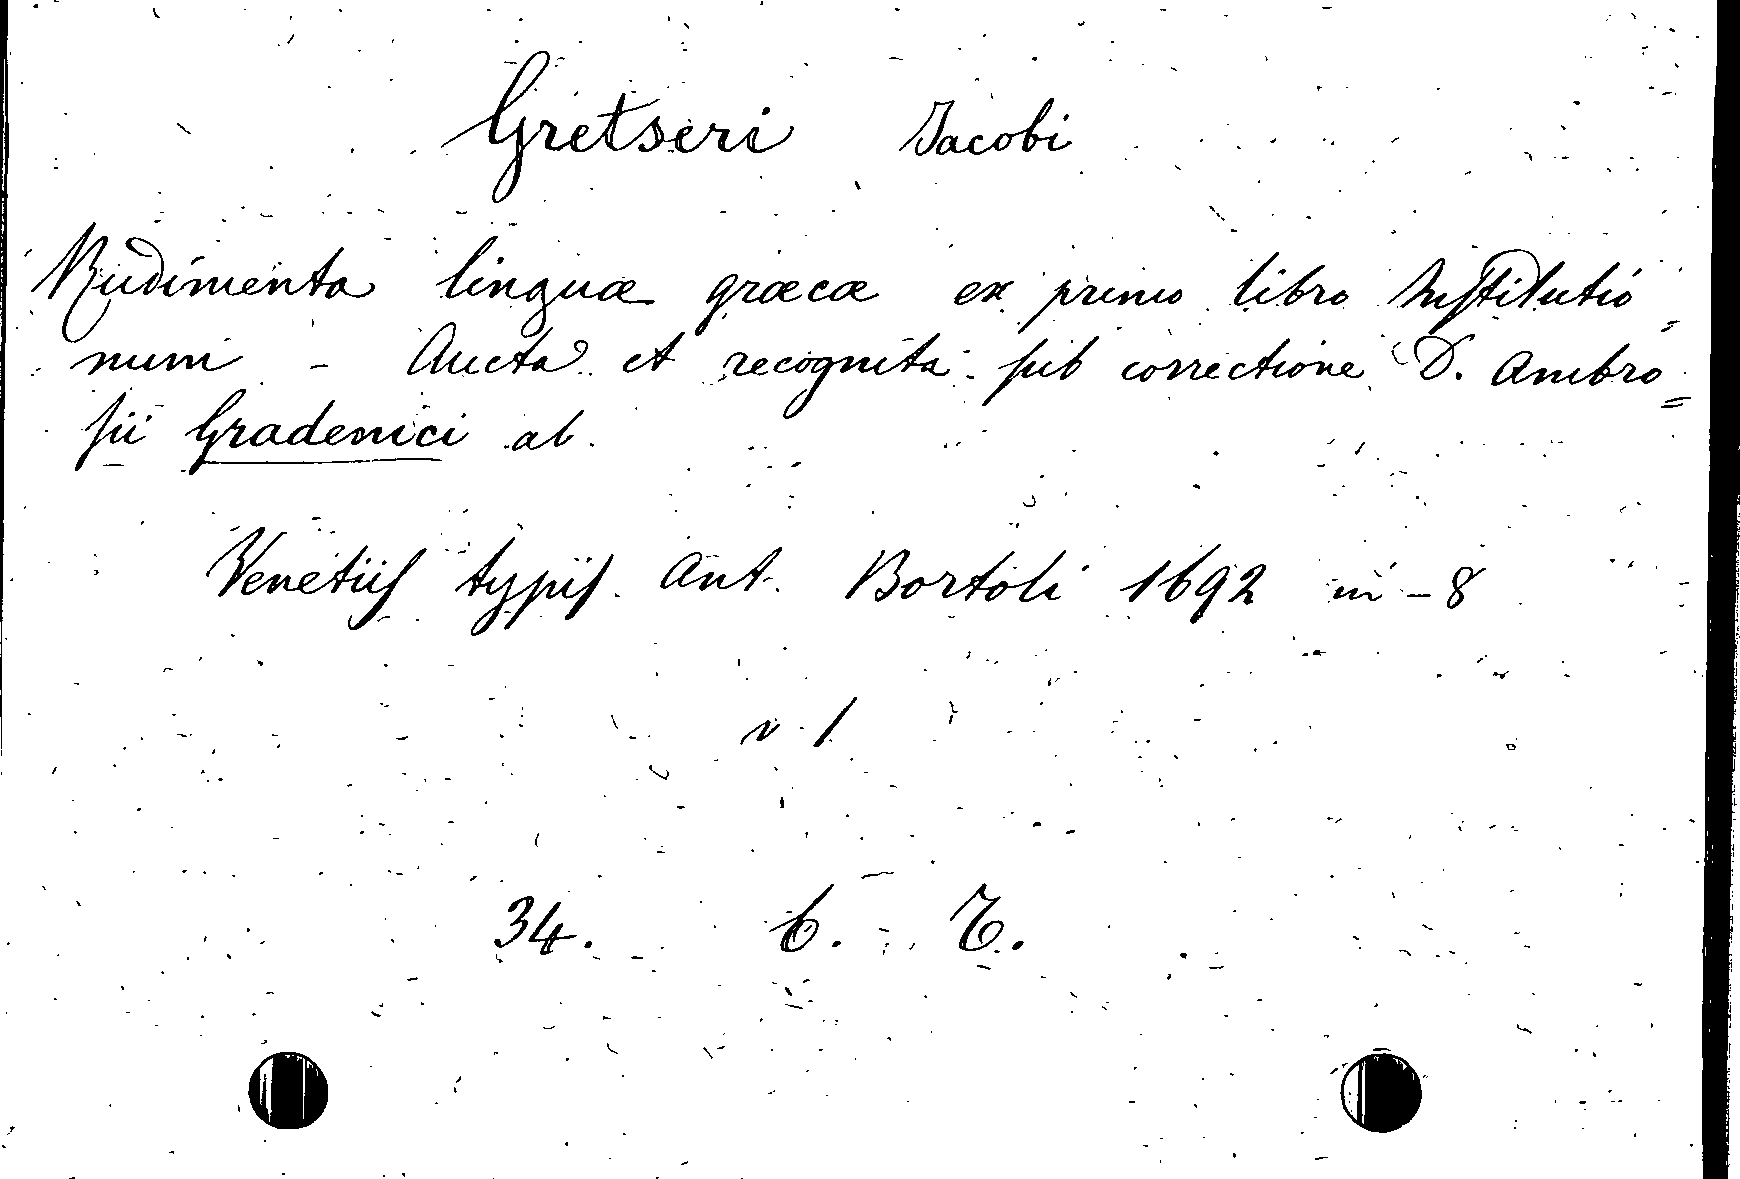 Gretseri Jacobi
Rudimenta linguæ græcæ ex primo libro Institutio=
num - Aucta et recognita sub correctione D. Ambro=
sii Gradenici ab.
Venetiis typis Ant. Bortoli 1692 in-8
v 1
34. 6. C.